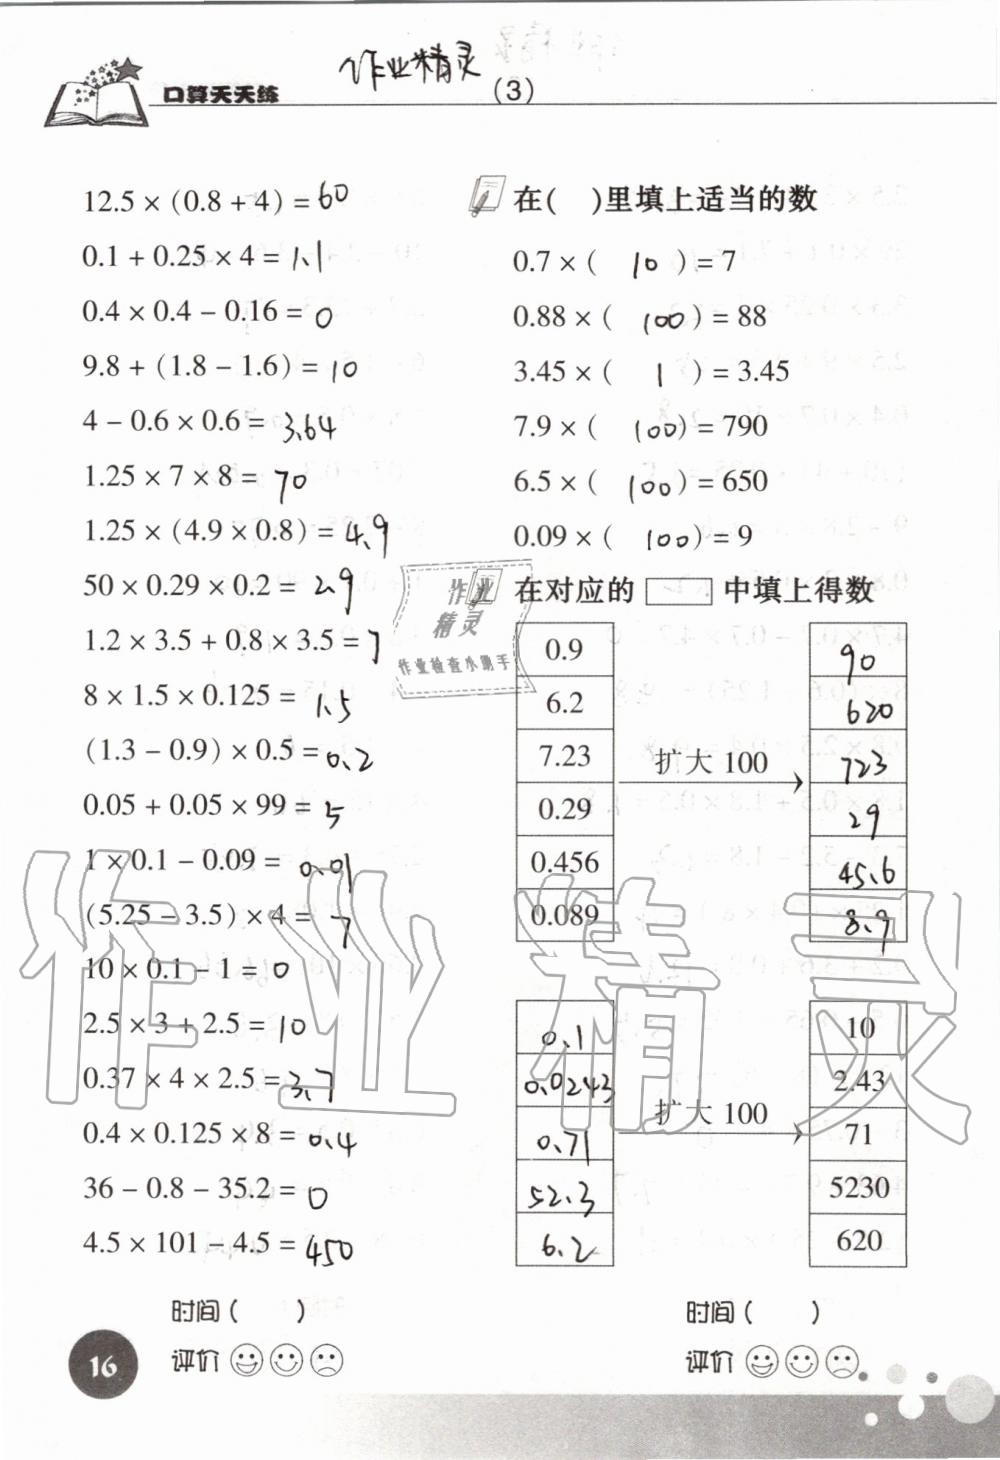 作业精灵
口算天天练
(3)
12.5 × (0.8 + 4) = 60
0.1 + 0.25 × 4 = 1.1
0.4 × 0.4 − 0.16 = 0
9.8 + (1.8 − 1.6) = 10
4 − 0.6 × 0.6 = 3.64
1.25 × 7 × 8 = 70
1.25 × (4.9 × 0.8) = 4.9
50 × 0.29 × 0.2 = 2.9
1.2 × 3.5 + 0.8 × 3.5 = 7
8 × 1.5 × 0.125 = 1.5
(1.3 − 0.9) × 0.5 = 0.2
0.05 + 0.05 × 99 = 5
1 × 0.1 − 0.09 = 0.01
(5.25 − 3.5) × 4 = 7
10 × 0.1 − 1 = 0
2.5 × 3 + 2.5 = 10
0.37 × 4 × 2.5 = 3.7
0.4 × 0.125 × 8 = 0.4
36 − 0.8 − 35.2 = 0
4.5 × 101 − 4.5 = 450
时间( )
评价
在( )里填上适当的数
0.7 × ( 10 ) = 7
0.88 × ( 100 ) = 88
3.45 × ( 1 ) = 3.45
7.9 × ( 100 ) = 790
6.5 × ( 100 ) = 650
0.09 × ( 100 ) = 9
作业
精灵
作业检查小助手
在对应的 中填上得数
0.9 90
6.2 620
7.23 扩大 100 723
0.29 29
0.456 45.6
0.089 8.9
0.1 10
0.0243 2.43
0.71 扩大 100 71
52.3 5230
6.2 620
时间( )
评价
作业精灵
16